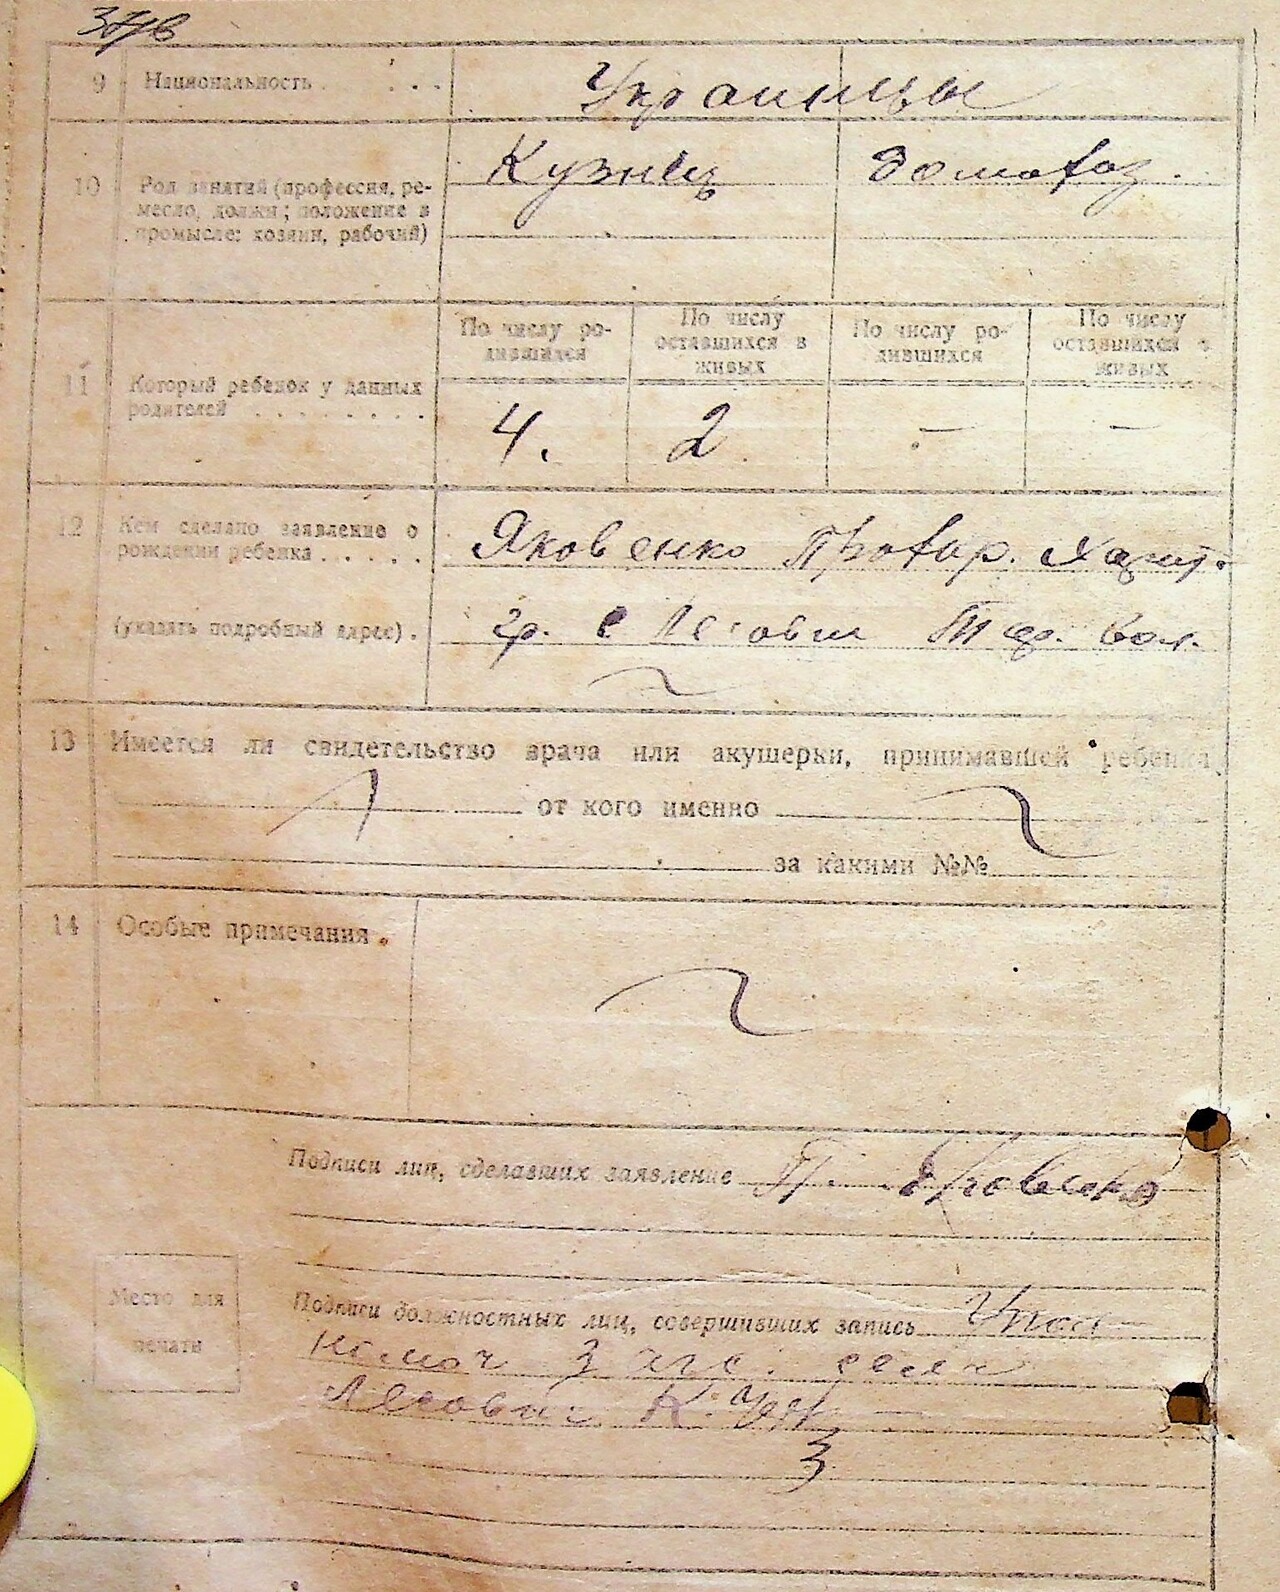 9 Национальность . . . . Украинцы
10 Род занятий (профессия, ре-
месло, должн; положение в
промысле: хозяин, рабочий)
Кузнец домохоз.
11 Который ребенок у данных
родителей . . . . . . . .
По числу ро-
дившихся
По числу
оставшихся в
живых
По числу ро-
дившихся
По числу
оставшихся в
живых
4. 2 – –
12 Кем сделано заявление о
рождении ребенка . . . . .
Яковенко
(указать подробный адрес) .
гр. с Лесович Тар. вол.
13 Имеется ли свидетельство врача или акушерки, принимавшей ребенка
от кого именно
за какими №№
14 Особые примечания .
Подписи лиц, сделавших заявление П. Яковенко
Место для
печати
Подписи должностных лиц, совершивших запись Упол